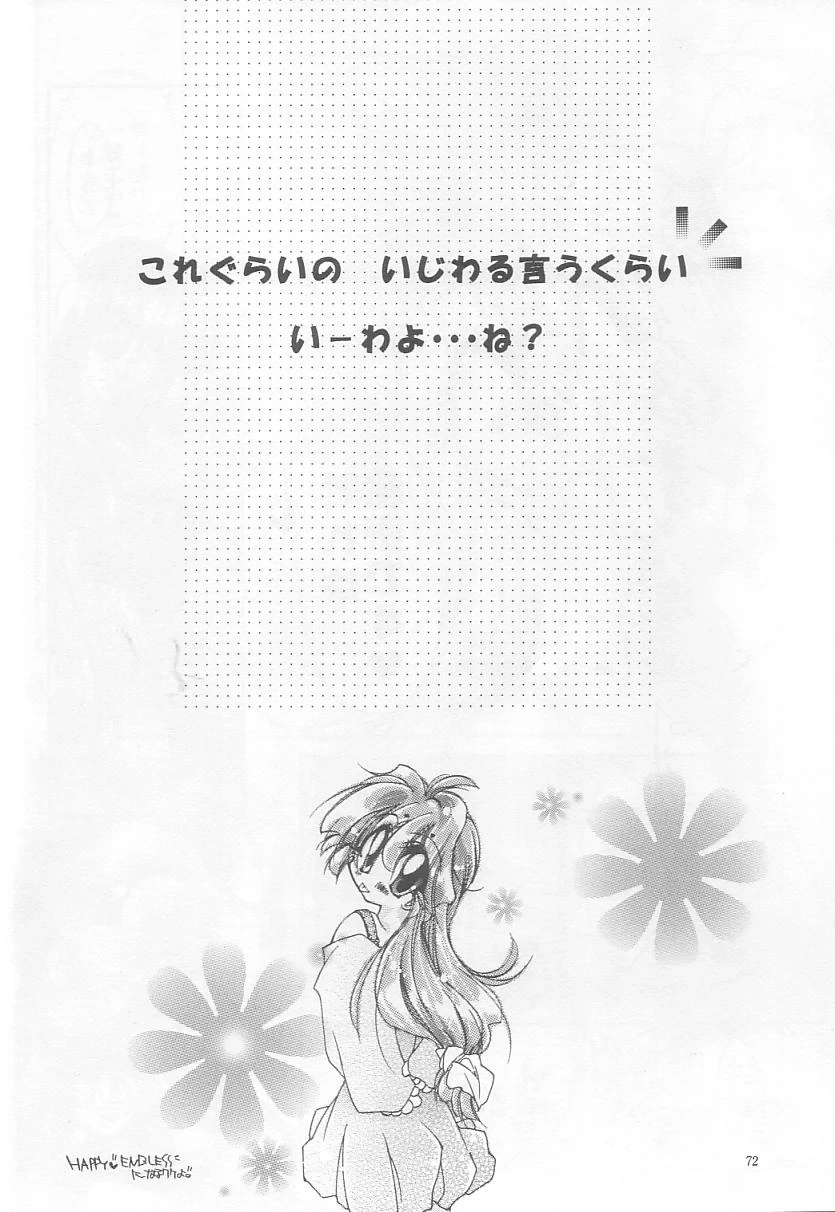 これぐらいの　いじわる言うくらい
いーわよ・・・ね？
HAPPY♥ENDLESS
72